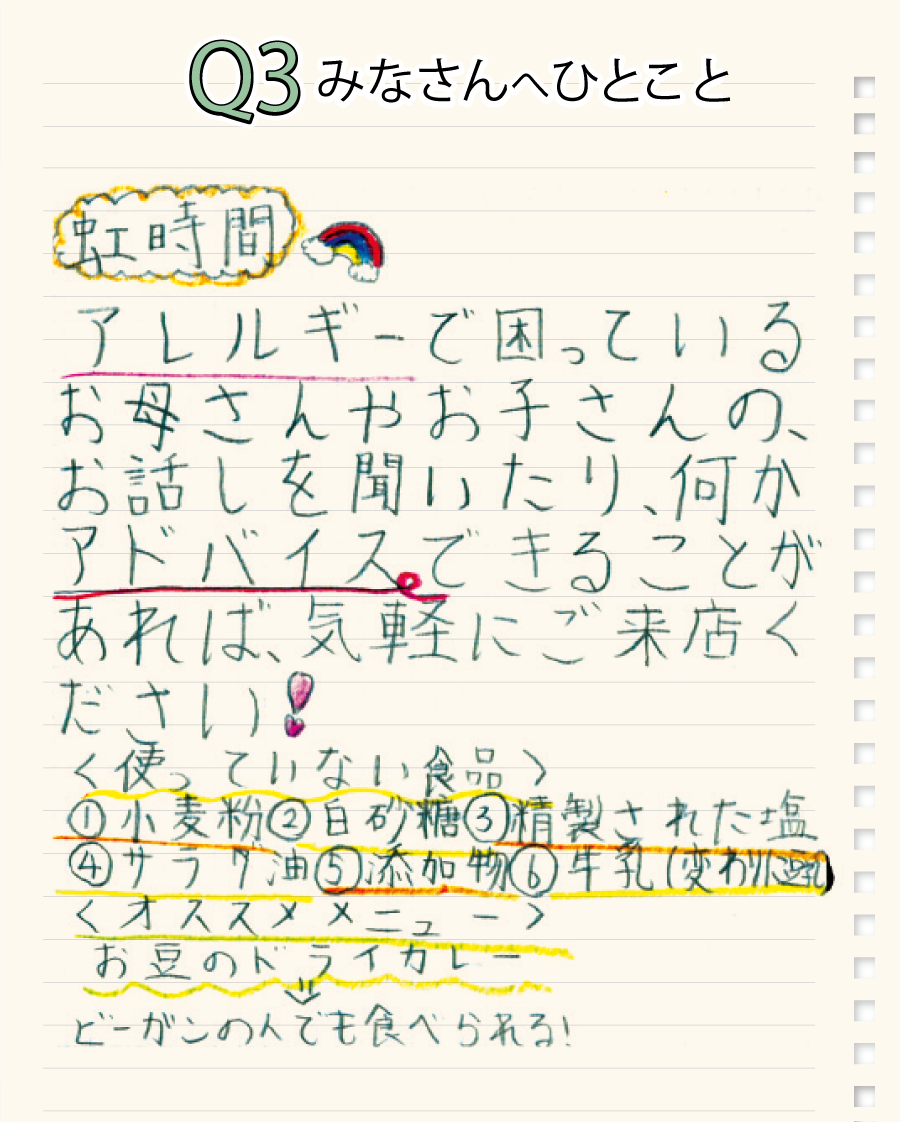 Q3 みなさんへひとこと
虹時間
アレルギーで困っている
お母さんやお子さんの、
お話しを聞いたり、何か
アドバイスできることが
あれば、気軽にご来店く
ださい!
<使っていない食品>
①小麦粉②白砂糖③精製された塩
④サラダ油⑤添加物⑥牛乳(変わりに豆乳)
<オススメメニュー>
お豆のドライカレー
⇓
ビーガンの人でも食べられる!